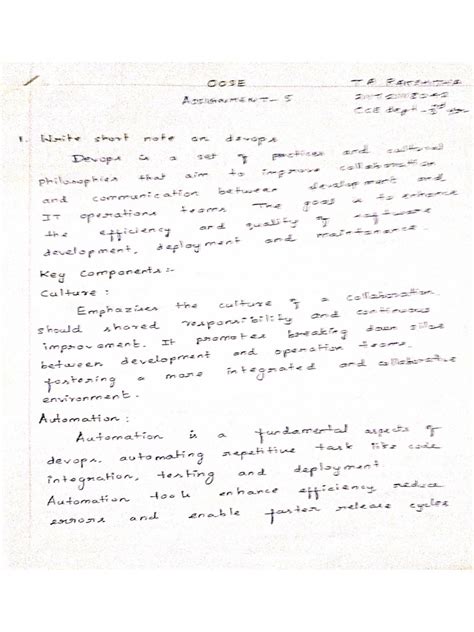 OOSE
ASSIGNMENT - 5
1. Write short note on devops
Devops is a set of practices and cultural
philosophies that aim to improve collaboration
and communication between development and
IT operations teams The goal is to enhance
the efficiency and quality of software
development, deployment and maintenance.
Key Components :-
Culture :
Emphazises the culture of a collaboration.
should shared responsibility and continuous
improvement. It promotes breaking down silos
between development and operation teams.
fostering a more integrated and collaborative
environment.
Automation :
Automation is a fundamental aspects of
devops, automating repetitive task like code
integration, testing and deployment
Automation tools enhance efficiency reduce
errors and enable faster release cycles